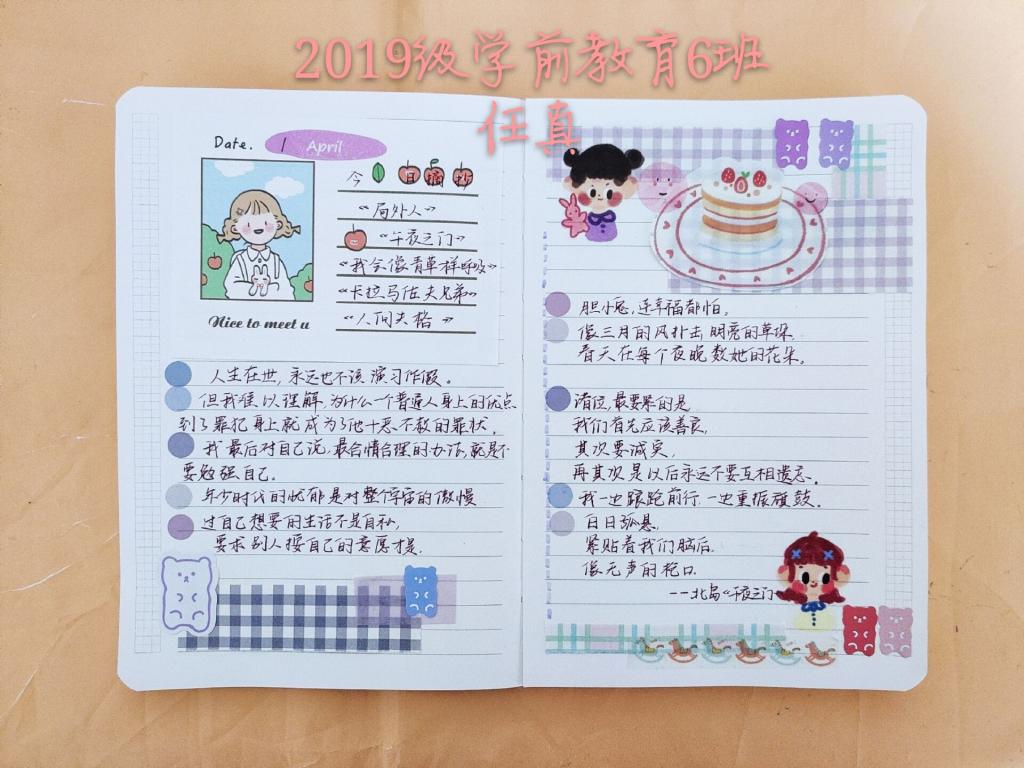 2019级学前教育6班
任真
Date. 1 April
今日摘抄
《局外人》
《午夜之门》
《我会像青草样呼吸》
《卡拉马佐夫兄弟》
《人间失格》
Nice to meet u
人生在世，永远也不该演习作假。
但我难以理解，为什么一个普通人身上的优点
到了罪犯身上就成为了他十恶不赦的罪状。
我最后对自己说，最合情合理的办法，就是不
要勉强自己。
年少时代的忧郁是对整个宇宙的傲慢
过自己想要的生活不是自私，
要求别人按自己的意愿才是.
胆小鬼，连幸福都怕。
像三月的风扑击明亮的草垛.
春天在每个夜晚数她的花朵。
诸位，最要紧的是
我们首先应该善良，
其次要诚实，
再其次是以后永远不要互相遗忘。
我一边踉跄前行一边重振旗鼓。
白日孤悬，
紧贴着我们脑后.
像无声的枪口.
--北岛《午夜之门》